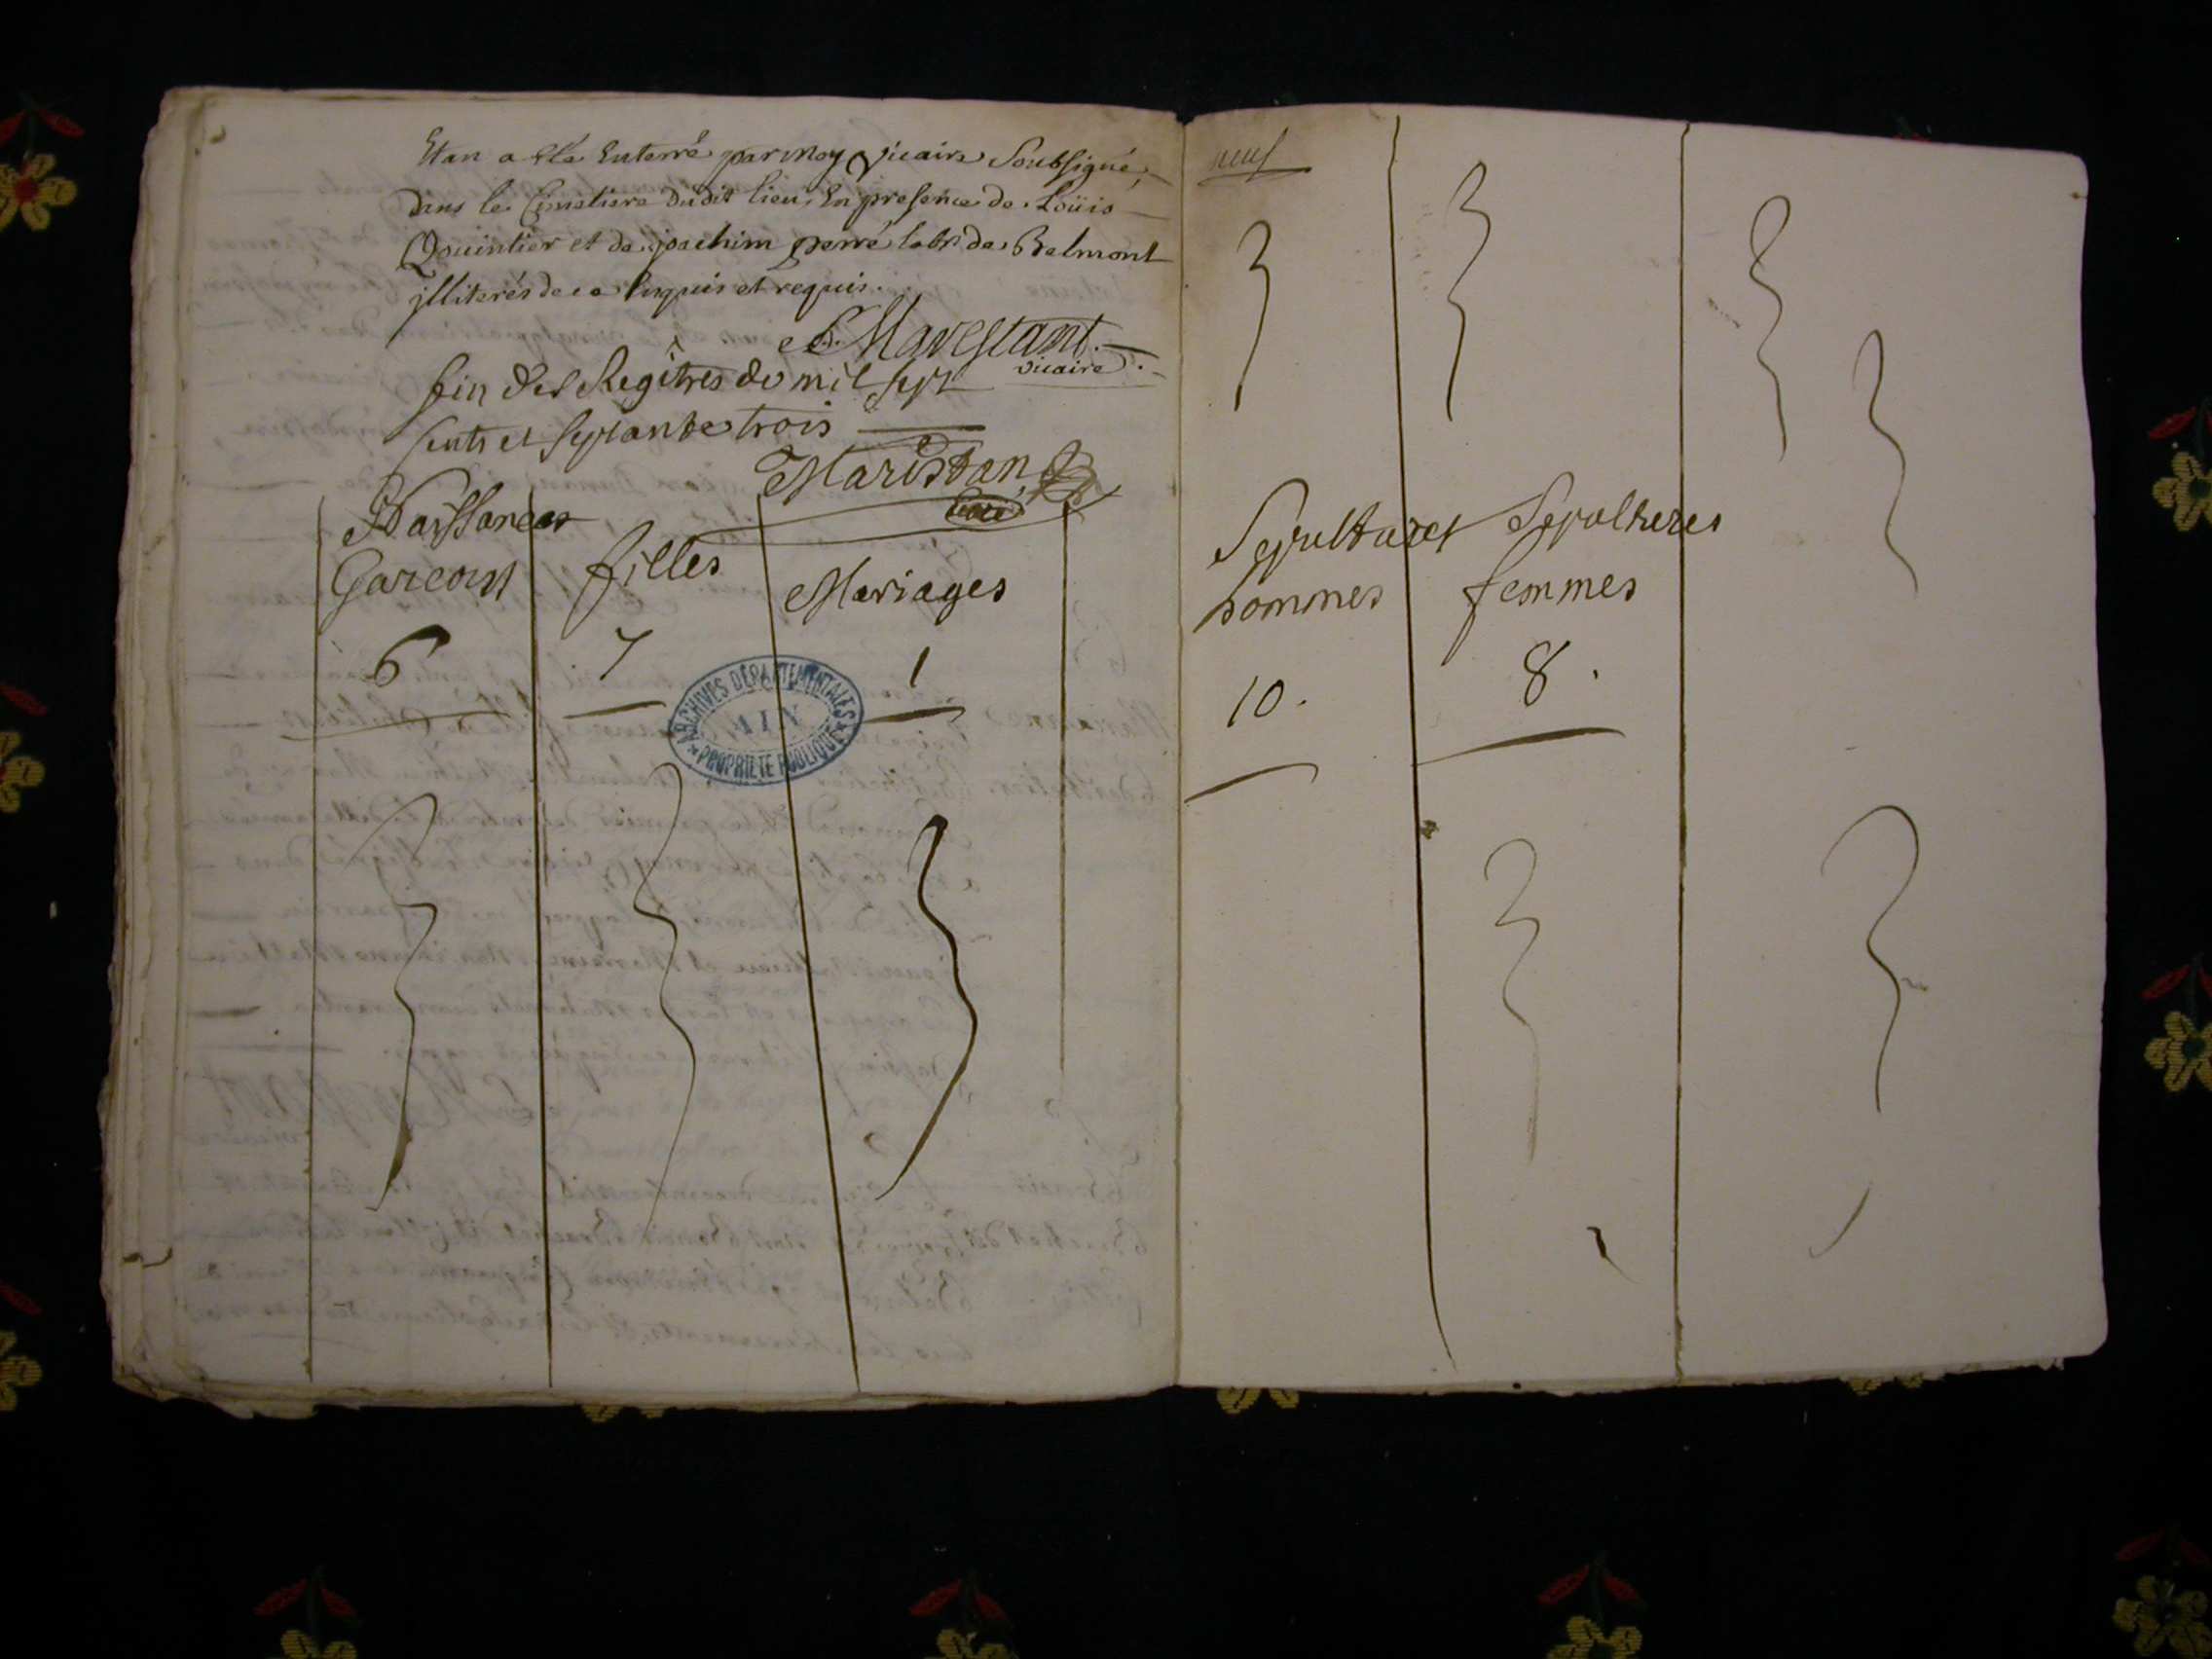 a esté Enterré par moy vicaire Soubsigné,
dans le Cimetiere dudit lieu, En presence de Loüis
Qouintier et de joachim perré labr de Belmont
jlliterés de ce Enquis et requis.
Marestant.
vicaire.
fin des Regîtres de mil sept
cents et septante trois
Maristan
Curé
Naissances
Garcons
filles
Mariages
6
7
1
ARCHIVES DÉPARTEMENTALES
AIN
PROPRIÉTÉ PUBLIQUE
neuf
Sepultures Sepultures
hommes femmes
10. 8.